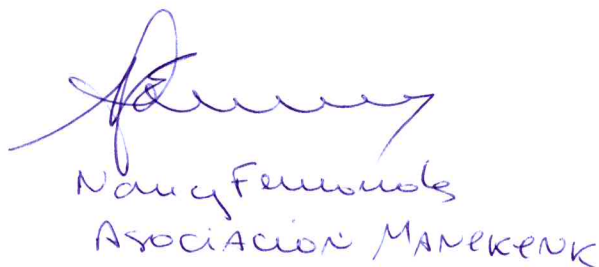 Nancy Fernandez
Asociación MANeKeNK